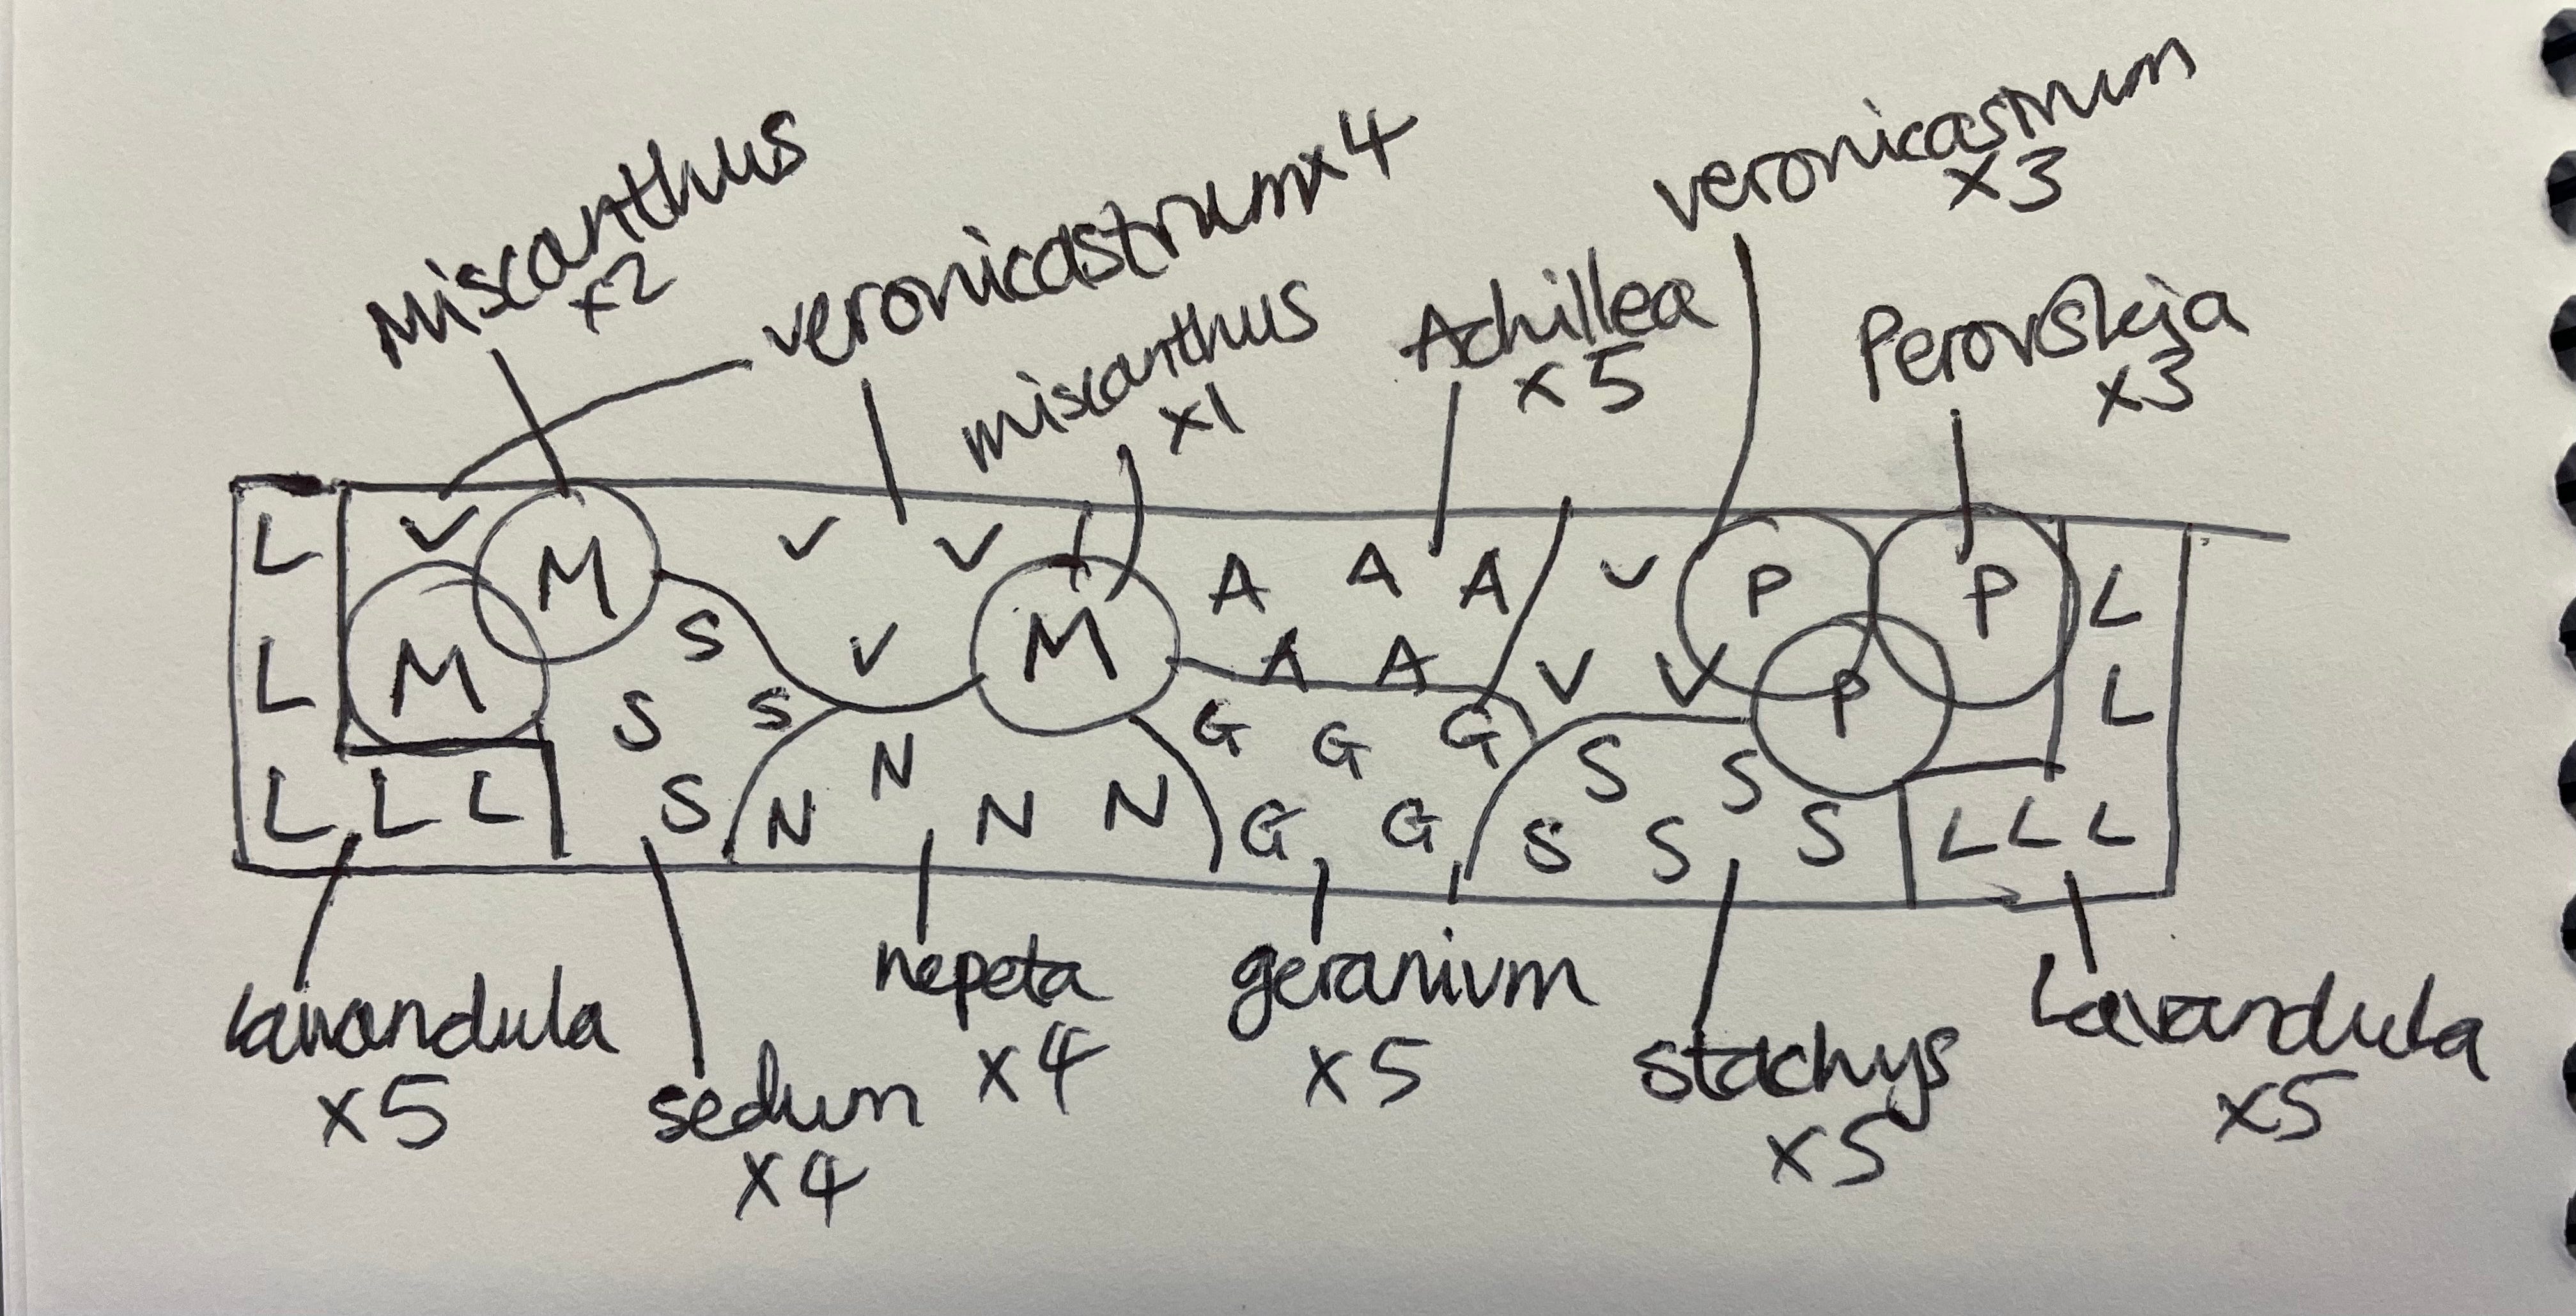 Miscanthus
x2
veronicastrum x4
miscanthus
x1
Achillea
x5
veronicastrum
x3
Perovskia
x3
L V M V V A A A V P P L
L M S V M A A V V P L
S S G G G
L L L S N N N N G G S S S S S L L L
lavandula
x5
sedum
x4
nepeta
x4
geranium
x5
stachys
x5
Lavandula
x5